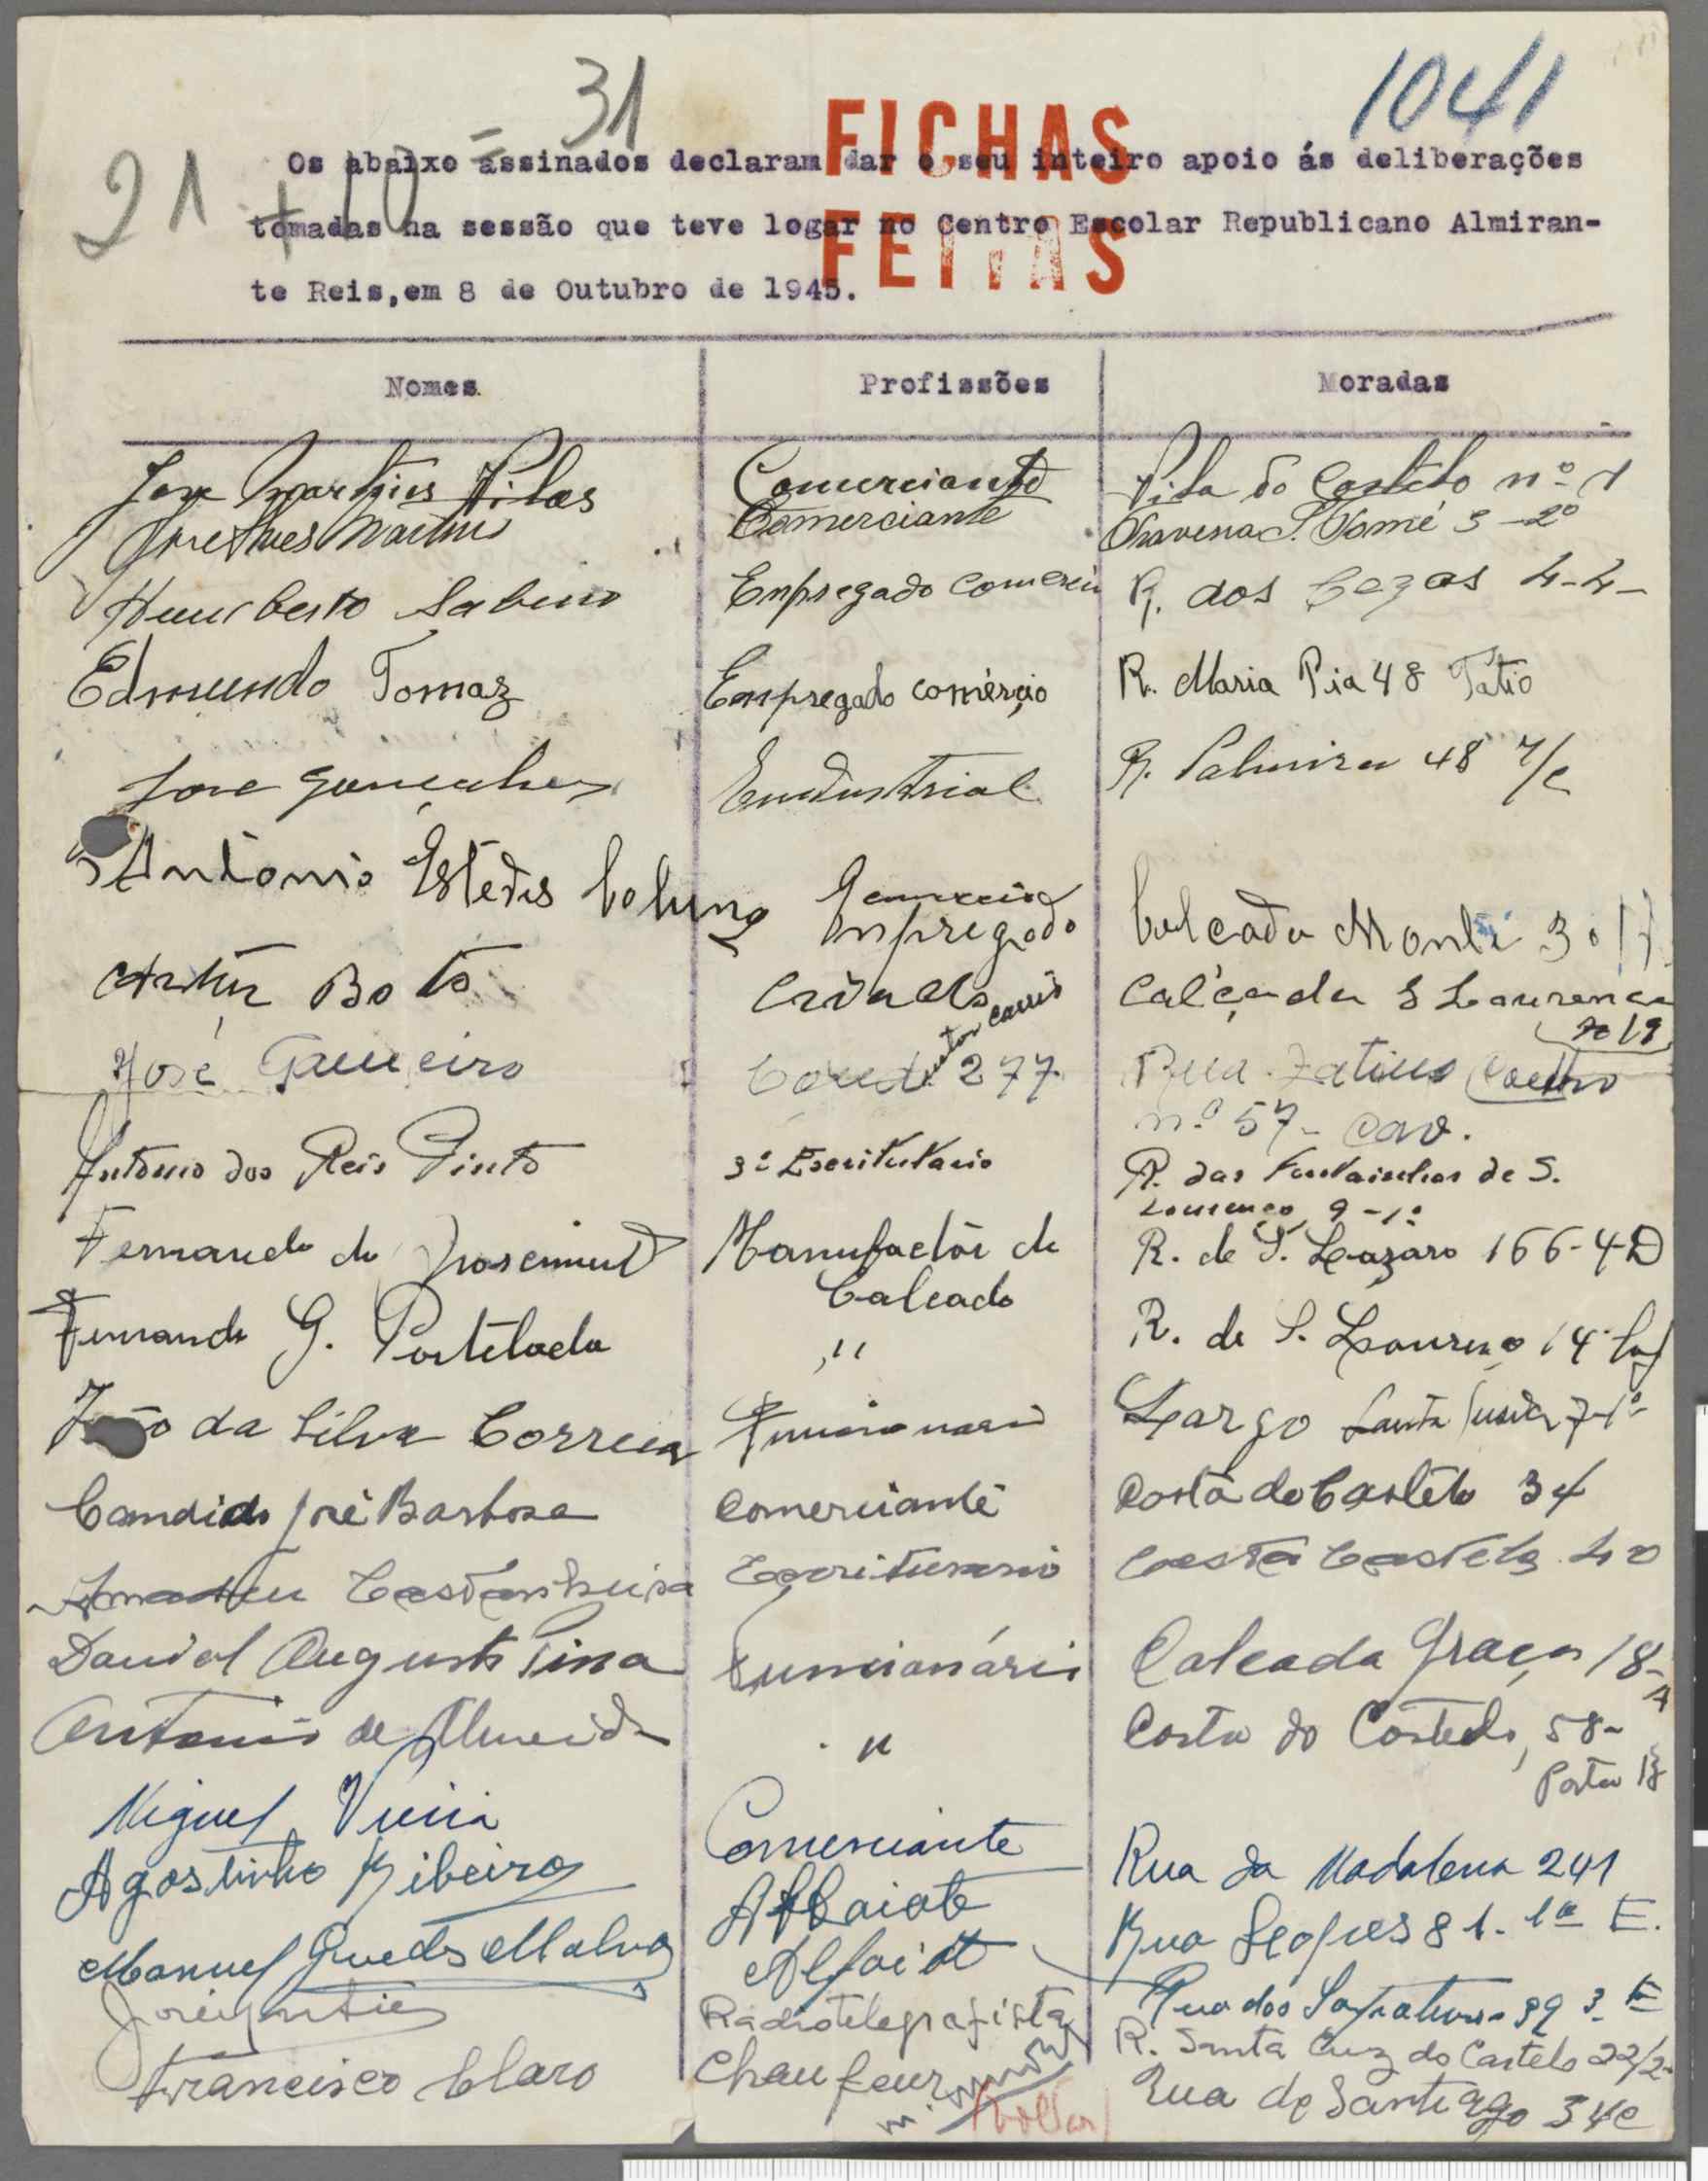 31
1041
21 + 10 =
FICHAS
FEITAS
Os abaixo assinados declaram dar o seu inteiro apoio ás deliberações
tomadas na sessão que teve logar no Centro Escolar Republicano Almiran-
te Reis,em 8 de Outubro de 1945.
Nomes Profissões Moradas
José Martins Comerciante do Castelo nº 1
Martins Comerciante S. Tomé 3-2º
Humberto Sabino Empregado Comercio R. dos 4-4-
Edmundo Tomaz Empregado comércio R. Maria Pia 48 Patio
José Gonçalves Endustrial R. Palmira 48 r/c
Antonio Esteves Coluna Calçada Monte
Empregado
Artur Boto Calçada S Lourenço
no 19
José 277 Rua Coelho
nº 57- cav.
Antonio dos Reis Pinto 3º Escriturario R. das Fontainhas de S.
Lourenço 9-1º
Fernando do Manufactôr de R. de S. Lazaro 166-4D
Calcado
Fernando G. Portelada " R. de S. Lourenço 14
João da Silva Correia Funcionario Largo Santa Luzia
Candido José Barbosa Comerciante Costa do Castelo 34
Amadeu Castanheira Escriturario Costa Castelo 40
Daniel Augusto Pina Funcionário Calcada Graça 18-
A
Antonio de Almeida " Costa do Castelo, 58-
Porta
Miguel Vieira Comerciante Rua da Madalena 241
Agostinho Ribeiro Alfaiate Rua 81. 1º E.
Manuel Guedes Alfaiate Rua dos 3. E
Radiotelegrafista R. Santa Cruz do Castelo 22/2
Francisco Claro Chaufeur Rua de Santiago 34c